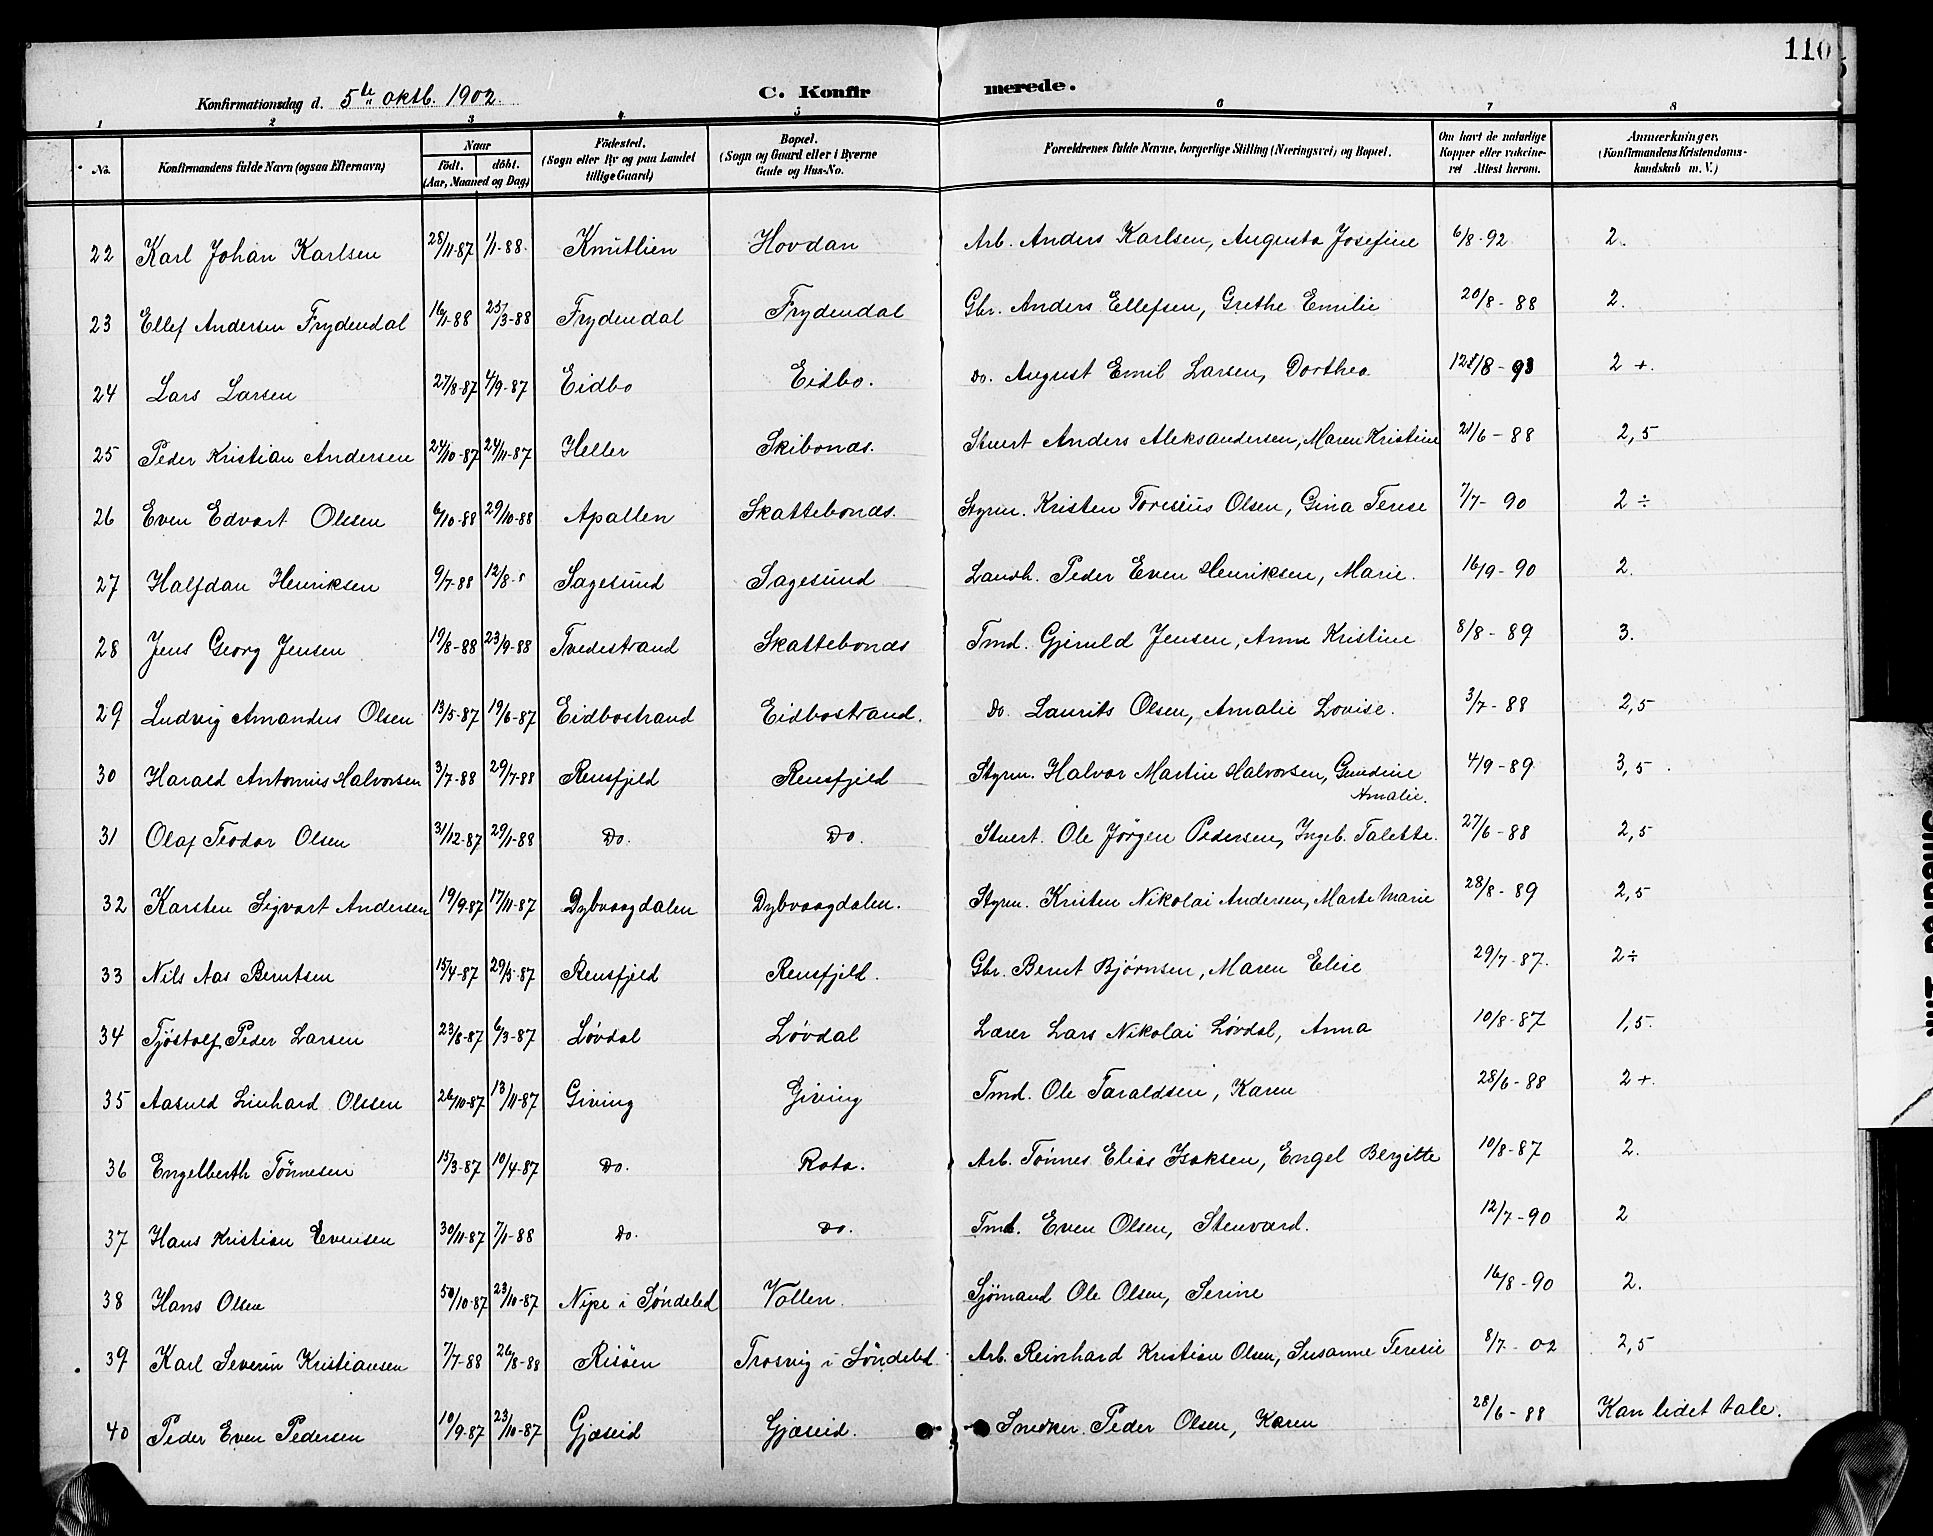 110
Konfirmationsdag d. 5te oktb. 1902. C. Konfir merede.
1 2 3 4 5 6 7 8
No. Konfirmandens fulde Navn (ogsaa Efternavn) Naar Födt. döbt. (Aar, Maaned og Dag) Födested. (Sogn eller By og paa Landet tillige Gaard) Bopæl. (Sogn og Gaard eller i Byerne Gade og Hus-No. Forældrenes fulde Navne, borgerlige Stilling (Næringsvei) og Bopæl. Om havt de naturlige Kopper eller vakcineret Attest herom. Anmærkninger. (Konfirmandens Kristendomskundskab m. V.)
22 Karl Johan Karlsen 28/11-87 1/1-88. Knutlien Hovdan Arb. Anders Karlsen, Augusta Josefine 6/8-92 2.
23 Ellef Andersen Frydendal 16/1-88 25/3-88 Frydendal Frydendal Gbr. Anders Ellefsen, Grethe Emilie 20/8-88 2.
24 Lars Larsen 27/8-87 4/9-87 Eidbo Eidbo. Do. August Emil Larsen, Dorthea 2 +.
25 Peder Kristian Andersen 24/10-87 24/11-87 Heller Skibonæs. Stuert Anders Aleksandersen, Maren Kristine 21/6-88 2,5
26 Even Edvart Olesen 6/10-88 29/10-88 Apallen Skattebonæs. Styrm. Kristen Toresius Olsen, Gina Terese 7/7-90 2 ÷
27 Halfdan Henriksen 9/7-88 12/8- Sagesund Sagesund Landh. Peder Even Henriksen, Marie. 16/9-90 2.
28 Jens Georg Jensen 19/8-88 23/9-88 Tvedestrand Skattebonæs Tmd. Gjeruld Jensen, Anne Kristine 8/8-89 3.
29 Ludvig Amandus Olsen 13/5-87 19/6-87 Eidbostrand Eidbostrand. Do. Laurits Olsen, Amalie Lovise. 3/7-88 2,5
30 Harald Antonius Halvorsen 3/7-88 29/7-88 Rensfjeld Rensfjeld Styrm. Halvor Martin Halvorsen, Gundine Amalie. 4/9-89 3,5
31 Olaf Teodor Olsen 31/12-87 29/1-88 Do. Do. Stuert. Ole Jörgen Pedersen, Ingeb. Talette. 27/6-88 2,5
32 Karsten Sigvart Andersen 19/9-87 17/11-87 Dybvaagdalen Dybvaagdalen. Styrm. Kristen Nikolai Andersen, Marte Marie 28/8-89 2,5
33 Nils Aas Berntsen 15/4-87 29/5-87 Rensfjeld Rensfjeld. Gbr. Bernt Bjørnsen, Maren Elise 29/7-87. 2÷
34 Tjöstolf Peder Larsen 23/8-87 6/3-87 Løvdal Løvdal Lærer Lars Nikolai Løvdal, Anna 10/8-87 1,5.
35 Aasuld Linhard Olesen 26/10-87 13/11-87 Giving Giving Tmd. Ole Taraldsen, Karen 28/6-88 2+.
36 Engelberth Tönnesen 15/3-87 10/4-87 Do. Rota. Arb. Tönnes Elias Isaksen, Engel Bergitte 10/8-87 2.
37 Hans Kristian Evensen 30/11-87 7/1-88 Do. Do. Tmd. Even Olsen, Stenvard. 12/7-90 2
38 Hans Olsen 23/10-87 Nipe i Søndeled Vollen. Sjömand Ole Olsen, Serine 16/8-90 2.
39 Karl Severin Kristiansen 7/7-88 26/8-88 Risöen Trosvig i Söndeled. Arb. Reinhard Kristian Olsen, Susanne Teresie 8/7-02 2,5
40 Peder Even Pedersen 10/9-87 23/10-87 Gjæseid Gjæseid. Snedker. Peder Olsen, Karen 28/6-88 Kan lidet tale.